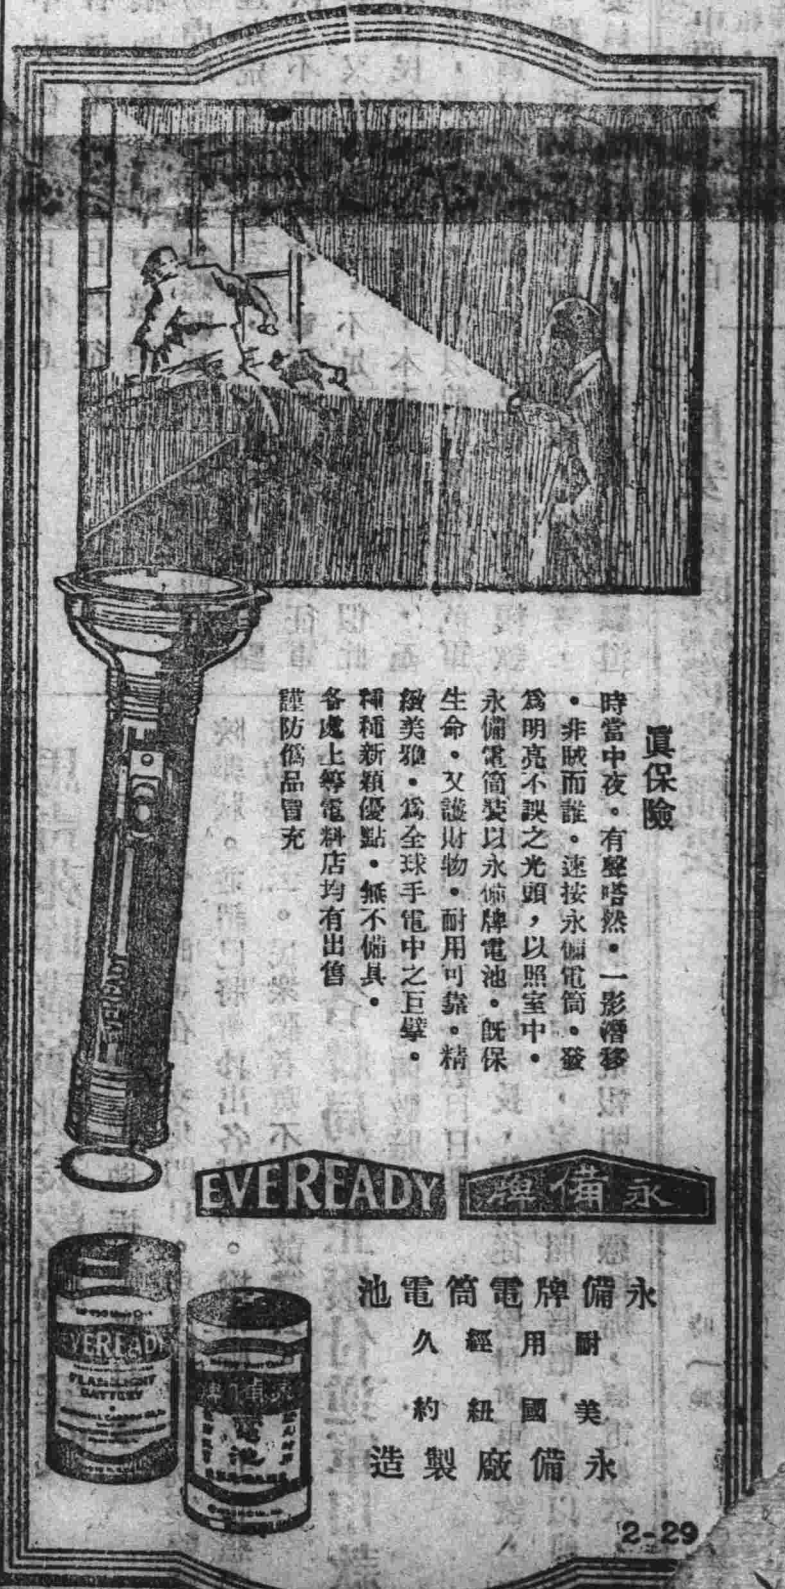 眞保險
時當中夜。有聲嗒然。一影潛移
。非賊而誰。速按永備電筒。發
爲明亮不誤之光頭,以照室中。
永備電筒裝以永備牌電池。旣保
生命。又護財物。耐用可靠。精
緻美雅。爲全球手電中之巨擘。
種種新穎優點。無不備具。
各處上等電料店均有出售
謹防僞品冒充
EVEREADY
永備牌
永備牌電筒電池
耐用經久
美國紐約
永備廠製造
EVEREADY
FLASHLIGHT
BATTERY
永備牌
電池
2-29